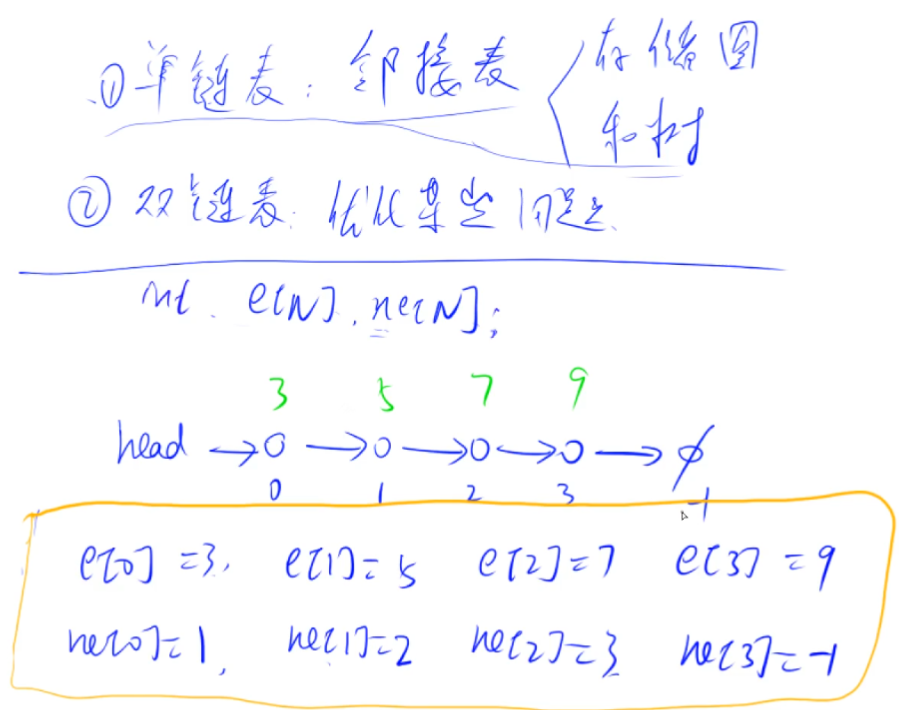 ①单链表：邻接表 存储图
和树
② 双链表：优化某些问题.
int e[N], ne[N];
3 5 7 9
head →0 →0 →0 →0 → ∅
0 1 2 3 -1
e[0]=3, e[1]=5 e[2]=7 e[3]=9
ne[0]=1, ne[1]=2 ne[2]=3 ne[3]=-1